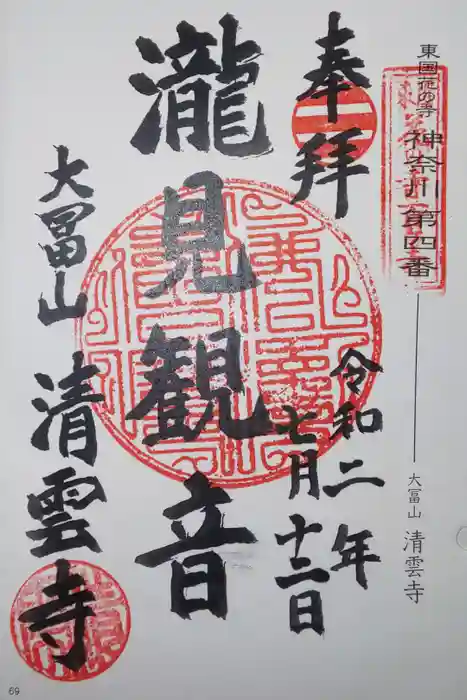 東国花の寺 神奈川 第四番
大冨山 清雲寺
奉拝
令和二年
七月十二日
瀧見観音
大冨山
清雲寺
69